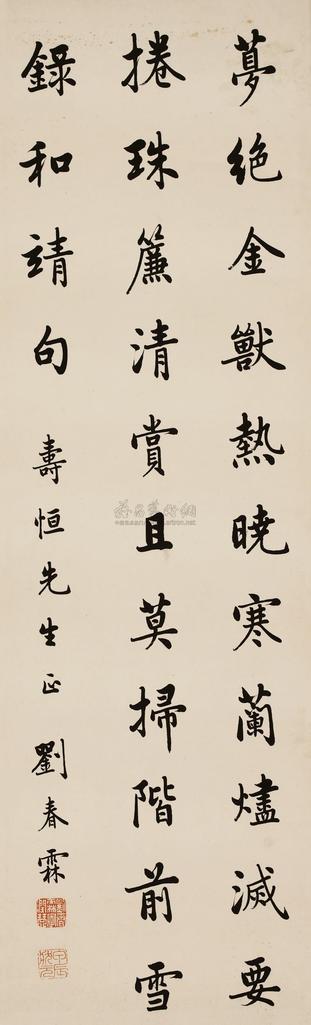 夢絶金獸熱曉寒蘭燼滅要
捲珠簾清賞且莫掃階前雪
錄和靖句
壽恒先生正 劉春霖